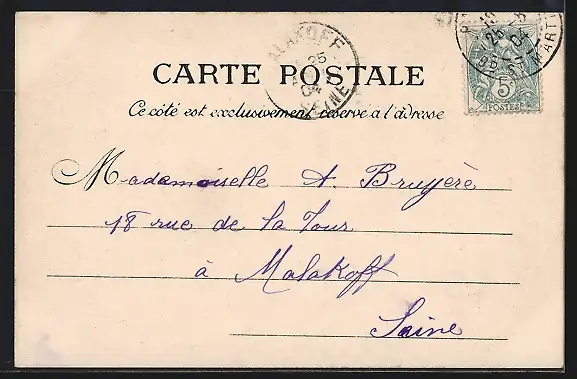 MALAKOFF
25
04
SEINE
25
MART
5c
POSTES
CARTE POSTALE
Ce côté est exclusivement réservé a l'adresse
Mademoiselle A. Bruyère
18 rue de la Tour
à Malakoff
Seine